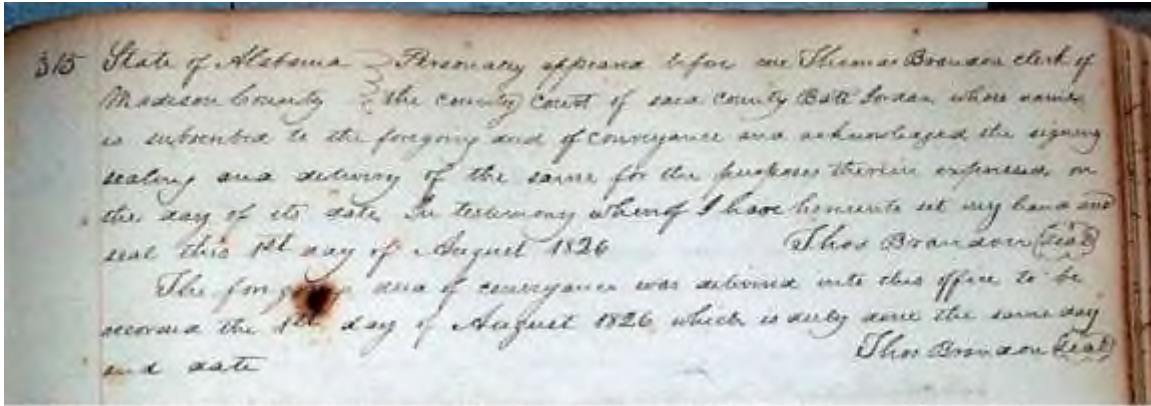 315 State of Alabama } Personally appeard before me Thomas Brandon clerk of
Madison County } the county Court of said county Batt Jordan whose name
is subscribed to the foregoing deed of conveyance and acknowledged the signing
sealing and delivery of the same for the purposes therein expressed on
the day of its date In testimony whereof I have hereunto set my hand and
seal this 1st day of August 1826 Thos Brandon (Seal)
The deed of conveyance was delivered into this office to be
recorded the 1st day of August 1826 which is duly done the same day
and date Thos Brandon (Seal)